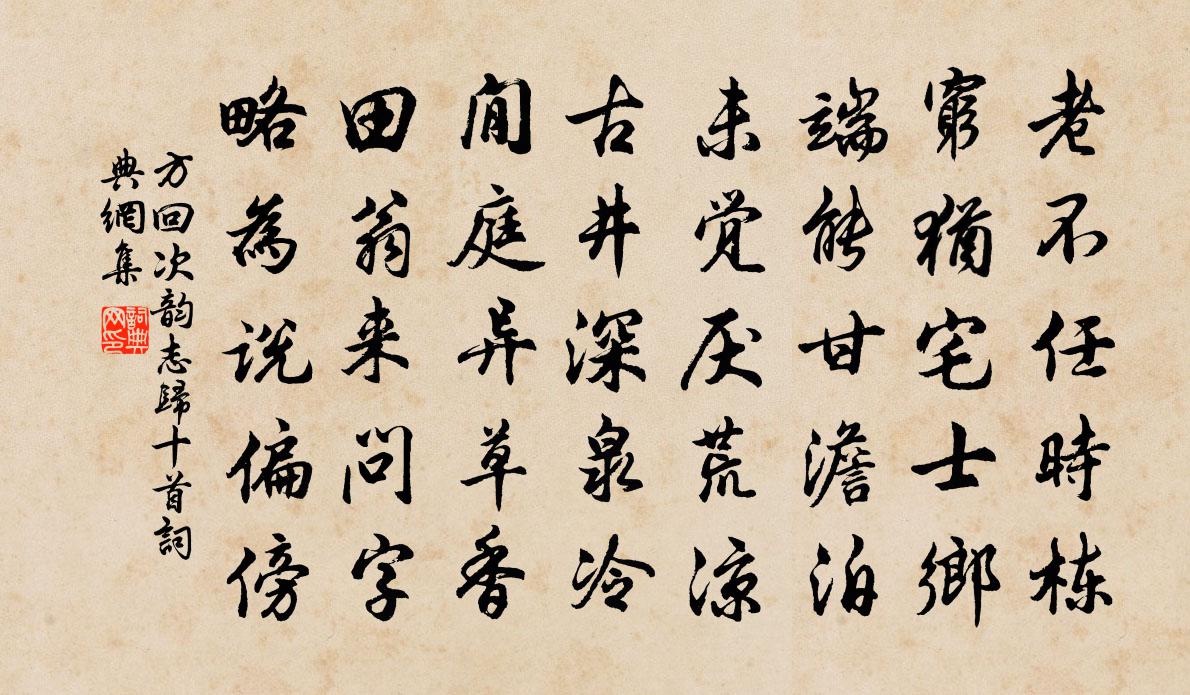 老不任時栋
窮猶宅士鄉
端能甘澹泊
未觉厌荒凉
古井深泉冷
閒庭异草香
田翁来问字
略為说偏傍
方回次韵志歸十首詞
典網集
詞典网印